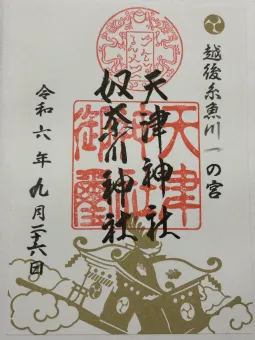 越後糸魚川一の宮
天津神社
奴奈川神社
令和六年九月二十六日